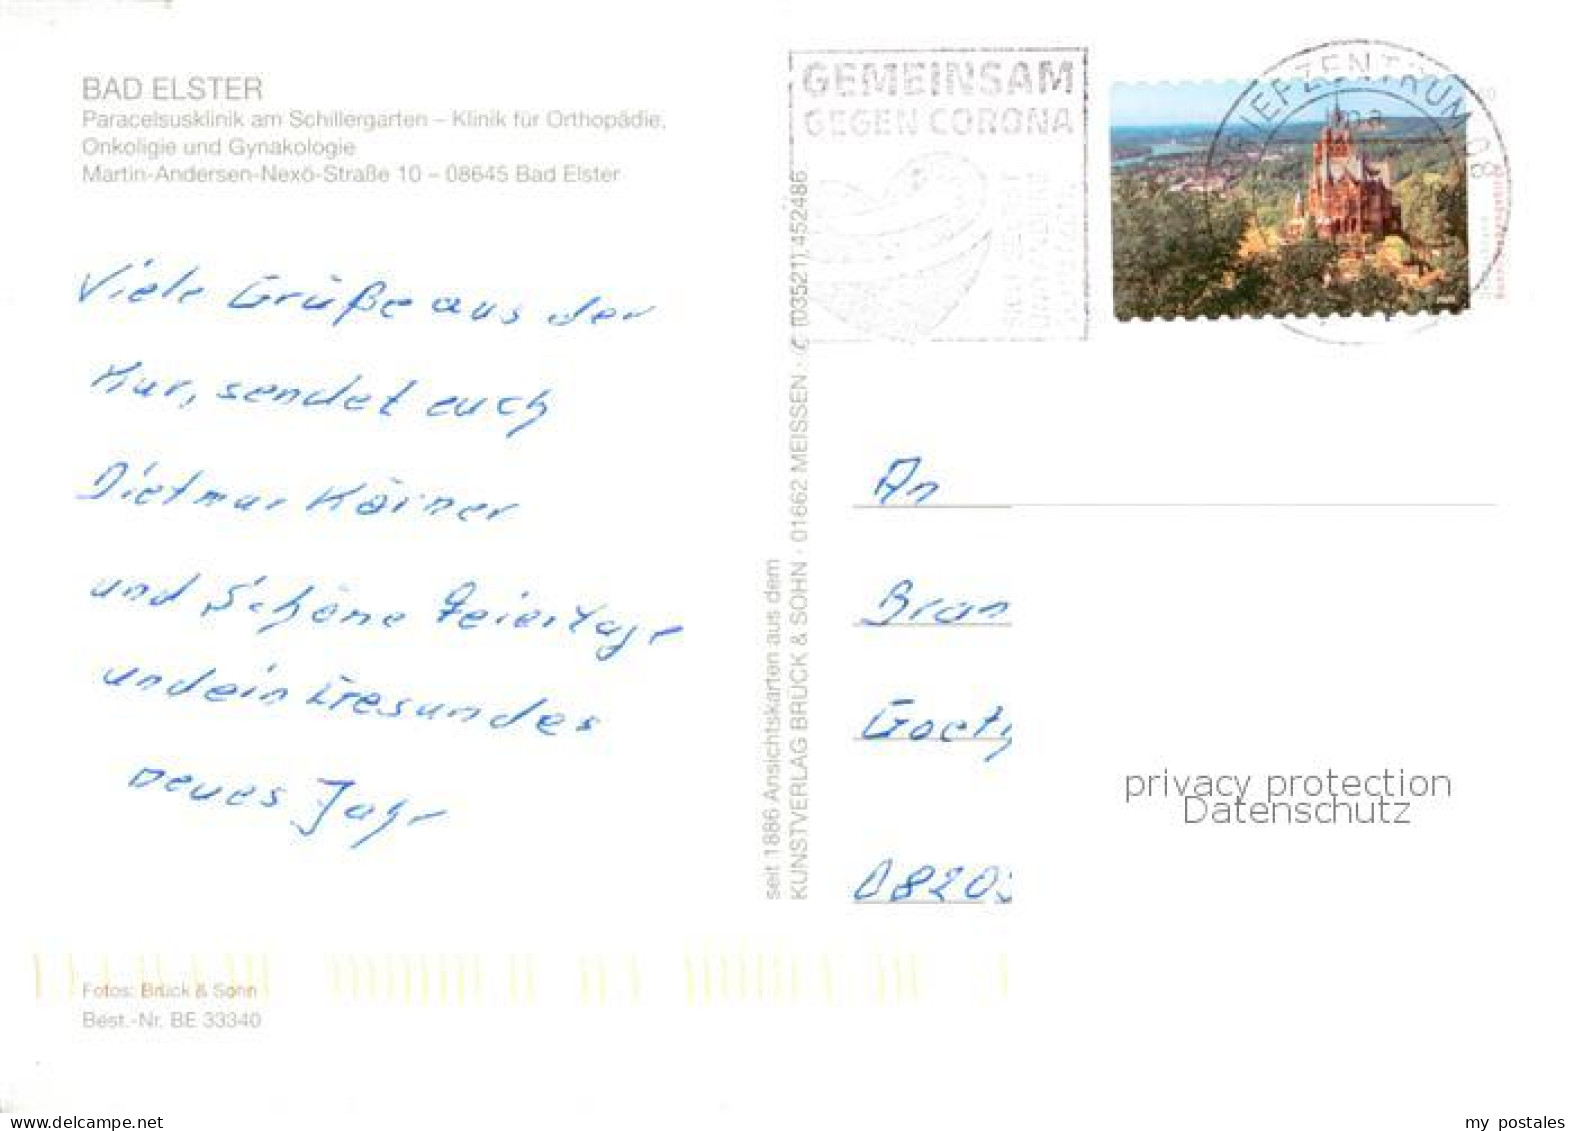 BAD ELSTER
Paracelsusklinik am Schillergarten – Klinik für Orthopädie,
Onkoligie und Gynäkologie
Martin-Andersen-Nexö-Straße 10 – 08645 Bad Elster
Viele Grüße aus der
Kur, sendet euch
Dietmar Körner
und Schöne Feiertage
und ein Gesundes
neues Jahr
Fotos: Brück & Sohn
Best.-Nr. BE 33340
seit 1886 Ansichtskarten aus dem
KUNSTVERLAG BRÜCK & SOHN · 01662 MEISSEN · ✆ (03521) 452486
GEMEINSAM
GEGEN CORONA
BRIEFZENTRUM 08
An
Bran
Goeth
0820
privacy protection
Datenschutz
www.delcampe.net
my_postales